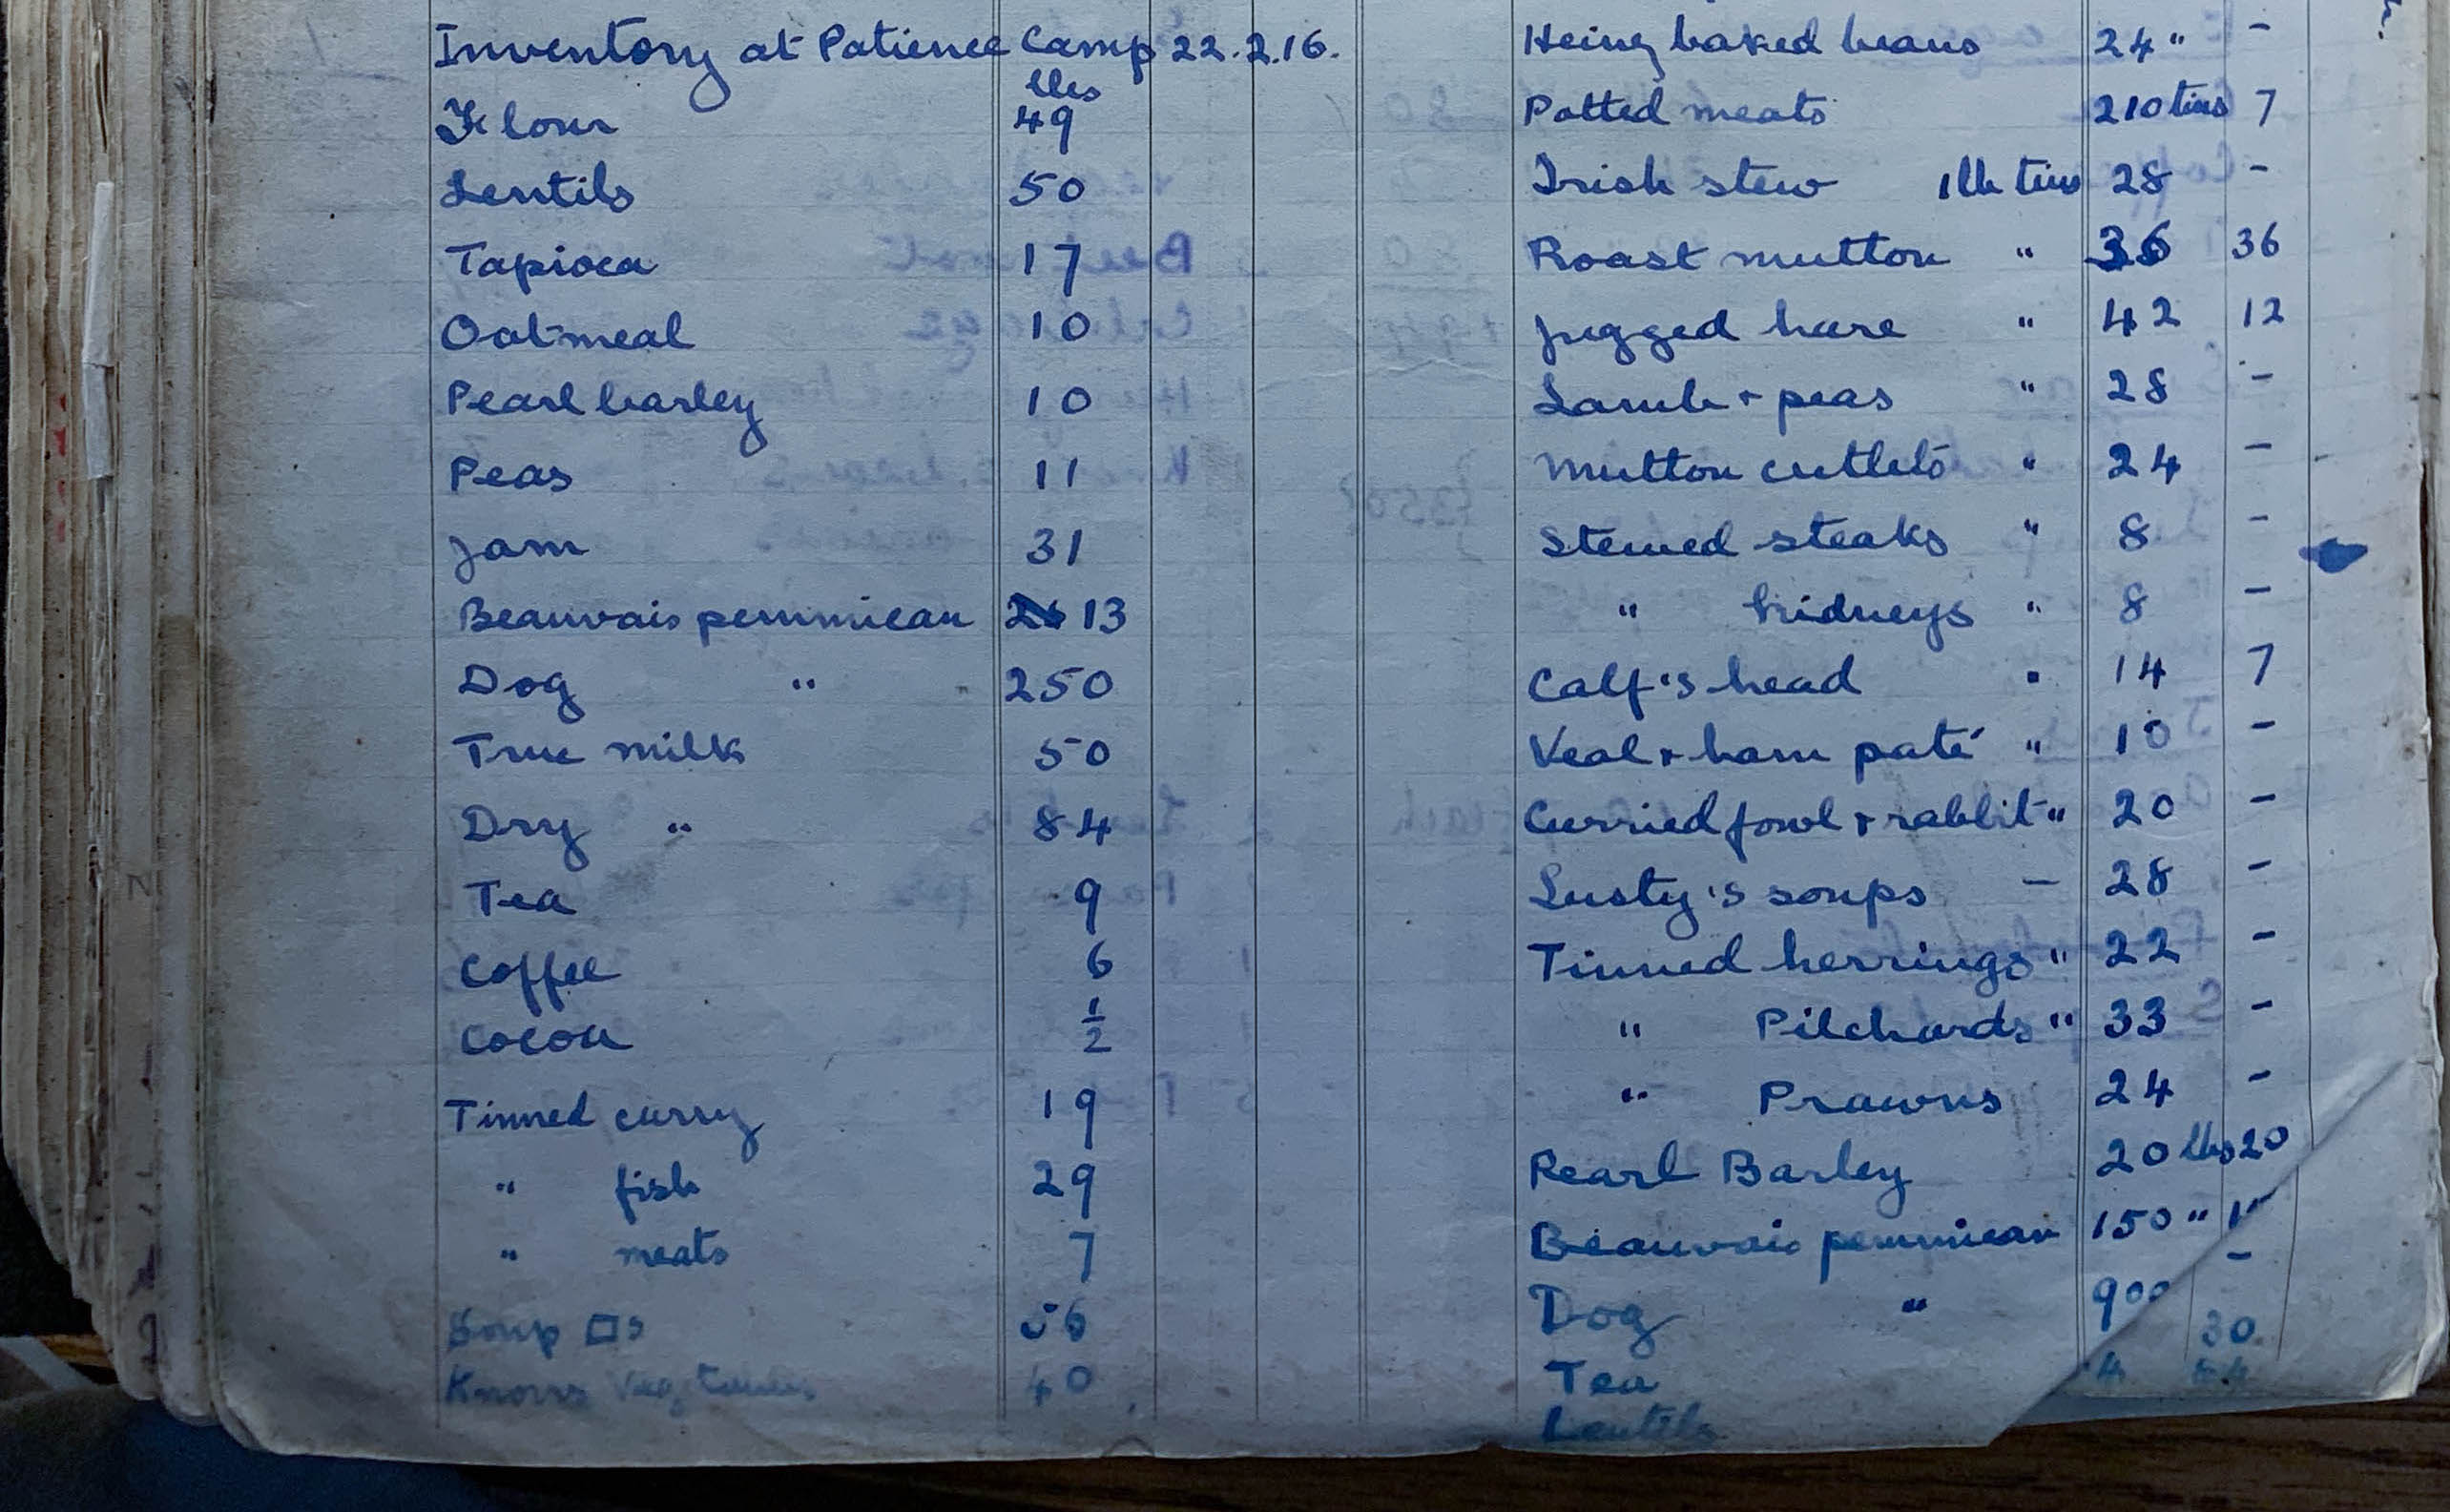 Inventory at Patience Camp 22.2.16.
lbs
Flour 49
Lentils 50
Tapioca 17
Oatmeal 10
Pearl barley 10
Peas 11
Jam 31
Beauvais pemmican 13
Dog " 250
True milk 50
Dry " 84
Tea 9
Coffee 6
Cocoa ½
Tinned curry 19
" fish 29
" meats 7
Soup □s 56
Knorrs Vegetables 40
Heinz baked beans 24 " -
Potted meats 210 tins 7
Irish stew 1lb tins 28 -
Roast mutton " 36 36
Jugged hare " 42 12
Lamb + peas " 28 -
Mutton cutlets " 24 -
Stewed steaks " 8 -
" kidneys " 8 -
Calf's head " 14 7
Veal + ham paté " 10 -
Curried fowl + rabbit " 20 -
Lusty's soups - 28 -
Tinned herrings " 22 -
" Pilchards " 33 -
" Prawns 24 -
Pearl Barley 20 lbs 20
Beauvais pemmican 150 "
Dog " 900 -
Tea 30
Lentils